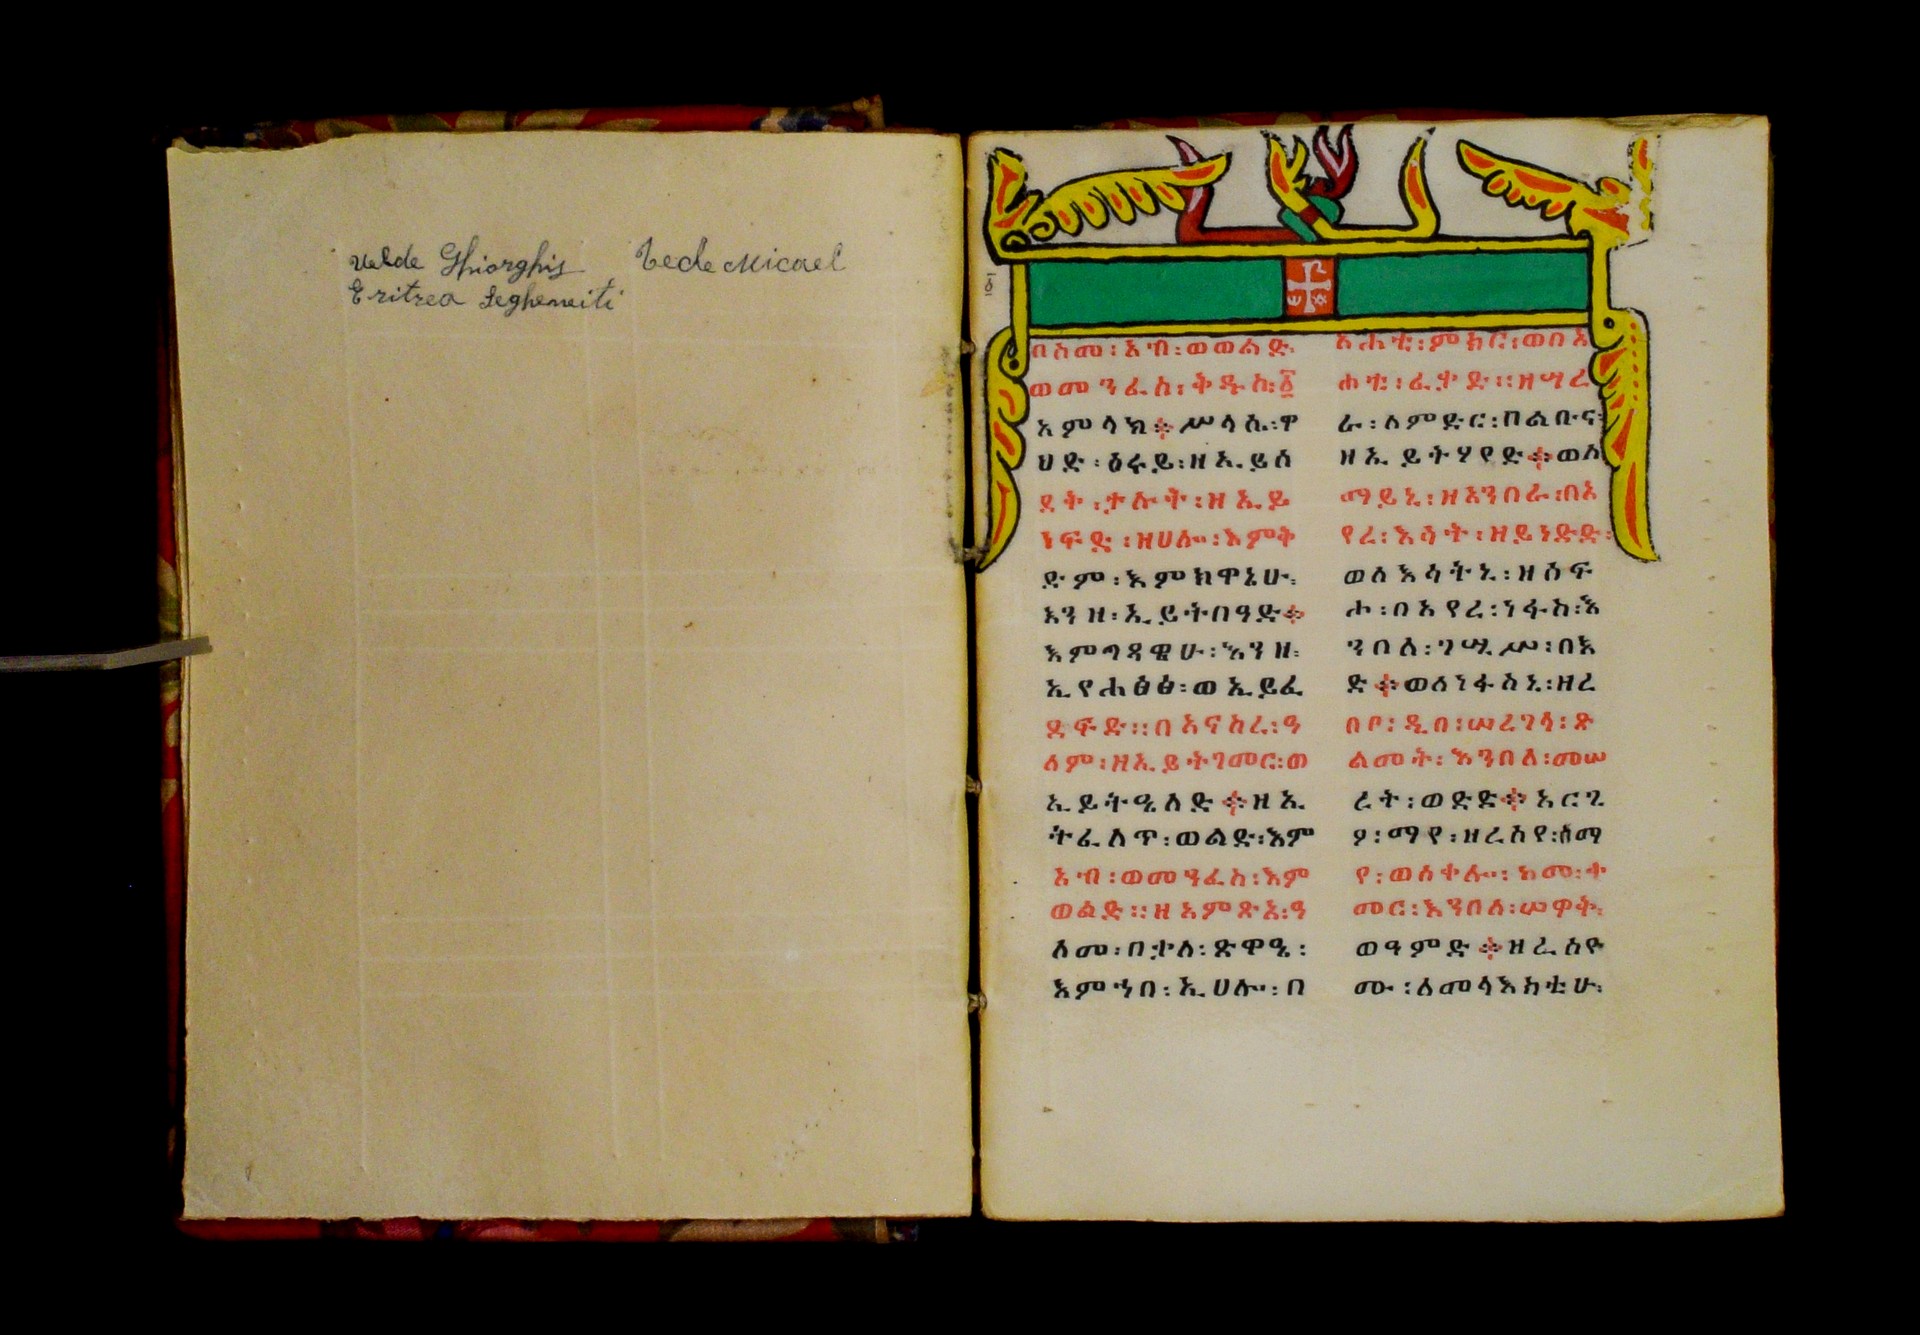 Uelde Ghiorghis
Tecle Micael
Eritrea Segheneiti
በስመ፡ አብ፡ ወወልድ፡
ወመንፈስ፡ ቅዱስ፡ ፩
አምላክ ። ሥላሴ፡ ዋ
ህድ፡ ዕሩይ፡ ዘኢይሰ
ደት፡ ታሎት፡ ዘኢይ
ነፍድ፡ ዘሀሎ፡ እምቅ
ድም፡ እምክዋኔሁ፡
እንዘ፡ ኢይትበዓድ ።
እምጣዳዊሁ፡ እንዘ፡
ኢየሐፅፅ፡ ወኢይፈ
ደፍድ ። በአናስረ፡ ዓ
ለም፡ ዘኢይትገመር፡ ወ
ኢይትዒለድ ። ዘኢ
ትፈለጥ፡ ወልድ፡ እም
አብ፡ ወመንፈስ፡ እም
ወልድ ። ዘአምጽአ፡ ዓ
ለመ፡ በቃለ፡ ጽዋዔ፡
እምኀበ፡ ኢሀሎ፡ በ
አሐቲ፡ ምክር፡ ወበአ
ሐቲ፡ ፈቃድ ። ዘሣረ
ራ፡ ለምድር፡ በልቡና፡
ዘኢይትሃየድ ። ወሰ
ማይኒ፡ ዘአንበራ፡ በአ
የረ፡ እሳት፡ ዘይነድድ፡
ወለእሳትኒ፡ ዘሰፍ
ሐ፡ በአየረ፡ ነፋስ፡ እ
ንበለ፡ ገሚሥ፡ በእ
ድ ። ወለነፋስኒ፡ ዘረ
በቦ፡ ዲበ፡ ሠረገላ፡ ጽ
ልመት፡ እንበለ፡ መሠ
ረት፡ ወድድ ። አርጊ
ዖ፡ ማየ፡ ዘረሰየ፡ ለማ
የ፡ ወሰቀሎ፡ ከመ፡ ቀ
መር፡ እንበለ፡ ሠዋቅ፡
ወዓምድ ። ዘረሰዮ
ሙ፡ ለመላእክቲሁ፡